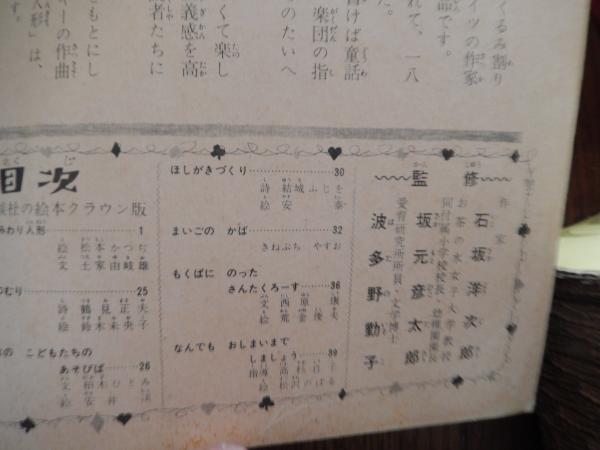 くるみ割り
イツの作家
品です。
れて、一八
た。
書けば童話
楽団の指
のたいへ
くて楽し
義感を高
者たちに
をもとにし
キーの作曲
人形」は、
す。
目次
談社の絵本クラウン版
みわり人形……1
絵 松本かつぢ
文 土家由岐雄
つむり……25
詩 鶴見正夫
絵 鈴木未央子
の こどもたちの
あそびば……26
ほしがきづくり……30
詩 結城ふじを
絵 安 泰
まいごの かば……32
きねぶち やすお
もくばに のった
さんたくろーす……36
なんでも おしまいまで
しましょう……39
監修
作家
石坂洋次郎
お茶の水女子大学教授
同付属小学校校長・幼稚園長
坂元彦太郎
愛育研究所所員・文学博士
波多野勤子